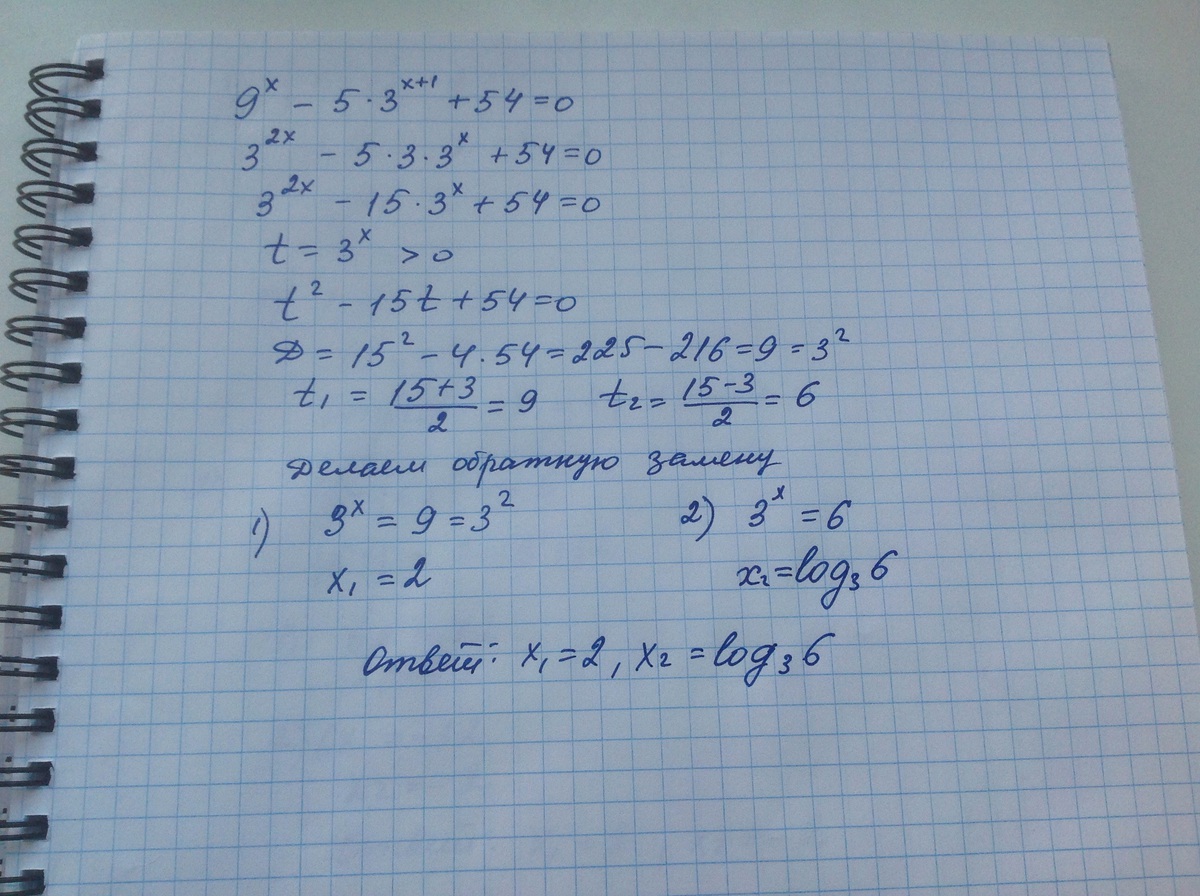 9^x − 5·3^(x+1) + 54 = 0
3^(2x) − 5·3·3^x + 54 = 0
3^(2x) − 15·3^x + 54 = 0
t = 3^x > 0
t² − 15t + 54 = 0
D = 15² − 4·54 = 225 − 216 = 9 = 3²
t₁ = (15+3)/2 = 9    t₂ = (15−3)/2 = 6
Делаем обратную замену
1) 3^x = 9 = 3²    2) 3^x = 6
x₁ = 2    x₂ = log₃6
Ответ: x₁ = 2, x₂ = log₃6